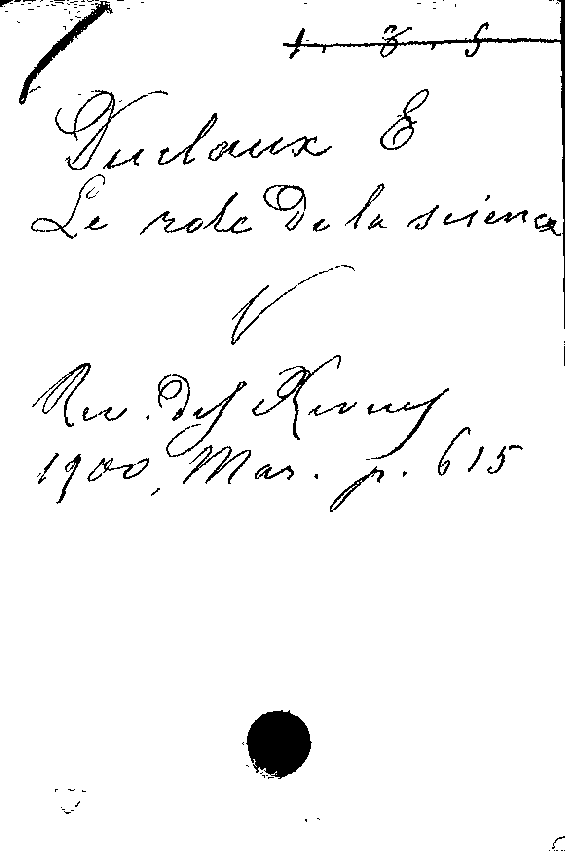 1. 8. 5
Duclaux E
Le role De la science
V
Rev. des Revues
1900, Mar. p. 615